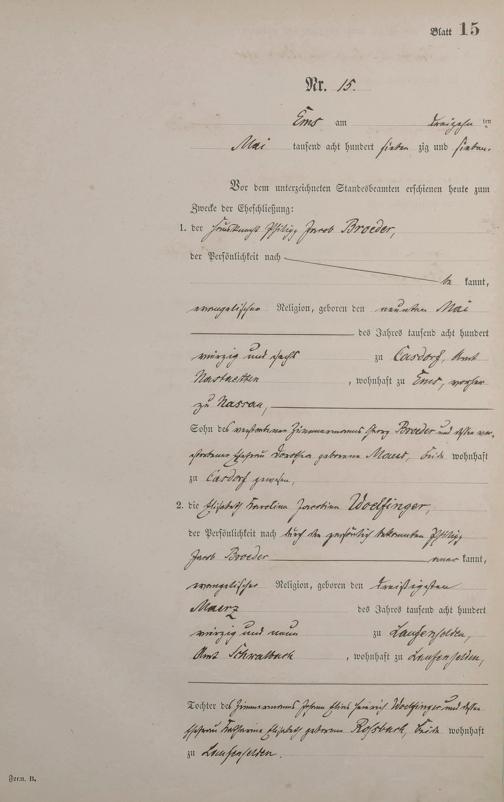 Blatt 15
Nr. 15.
Ems am dreizehnten
Mai tausend acht hundert siebenzig und sieben.
Vor dem unterzeichneten Standesbeamten erschienen heute zum
Zwecke der Eheschließung:
1. der Philipp Jacob Broeder,
der Persönlichkeit nach
be kannt,
evangelischer Religion, geboren den neunten Mai
des Jahres tausend acht hundert
vierzig und sechs zu Casdorf, Amt
Nastaetten, wohnhaft zu Ems, vorher
zu Nassau,
Sohn des verstorbenen Zimmermanns Georg Broeder und dessen ver-
storbener Ehefrau Dorothea geborene Maus, beide wohnhaft
zu Casdorf gewesen,
2. die Elisabeth Karoline Jacobine Woelfinger,
der Persönlichkeit nach durch den persönlich bekannten Philipp
Jacob Broeder aner kannt,
evangelischer Religion, geboren den dreißigsten
Maerz des Jahres tausend acht hundert
vierzig und neun zu Laufenselden,
Amt Schwalbach, wohnhaft zu Laufenselden,
Tochter des Zimmermanns Johann Elias Heinrich Woelfinger und dessen
Ehefrau Katharine Elisabeth geborene Roßbach, beide wohnhaft
zu Laufenselden.
Form. B.